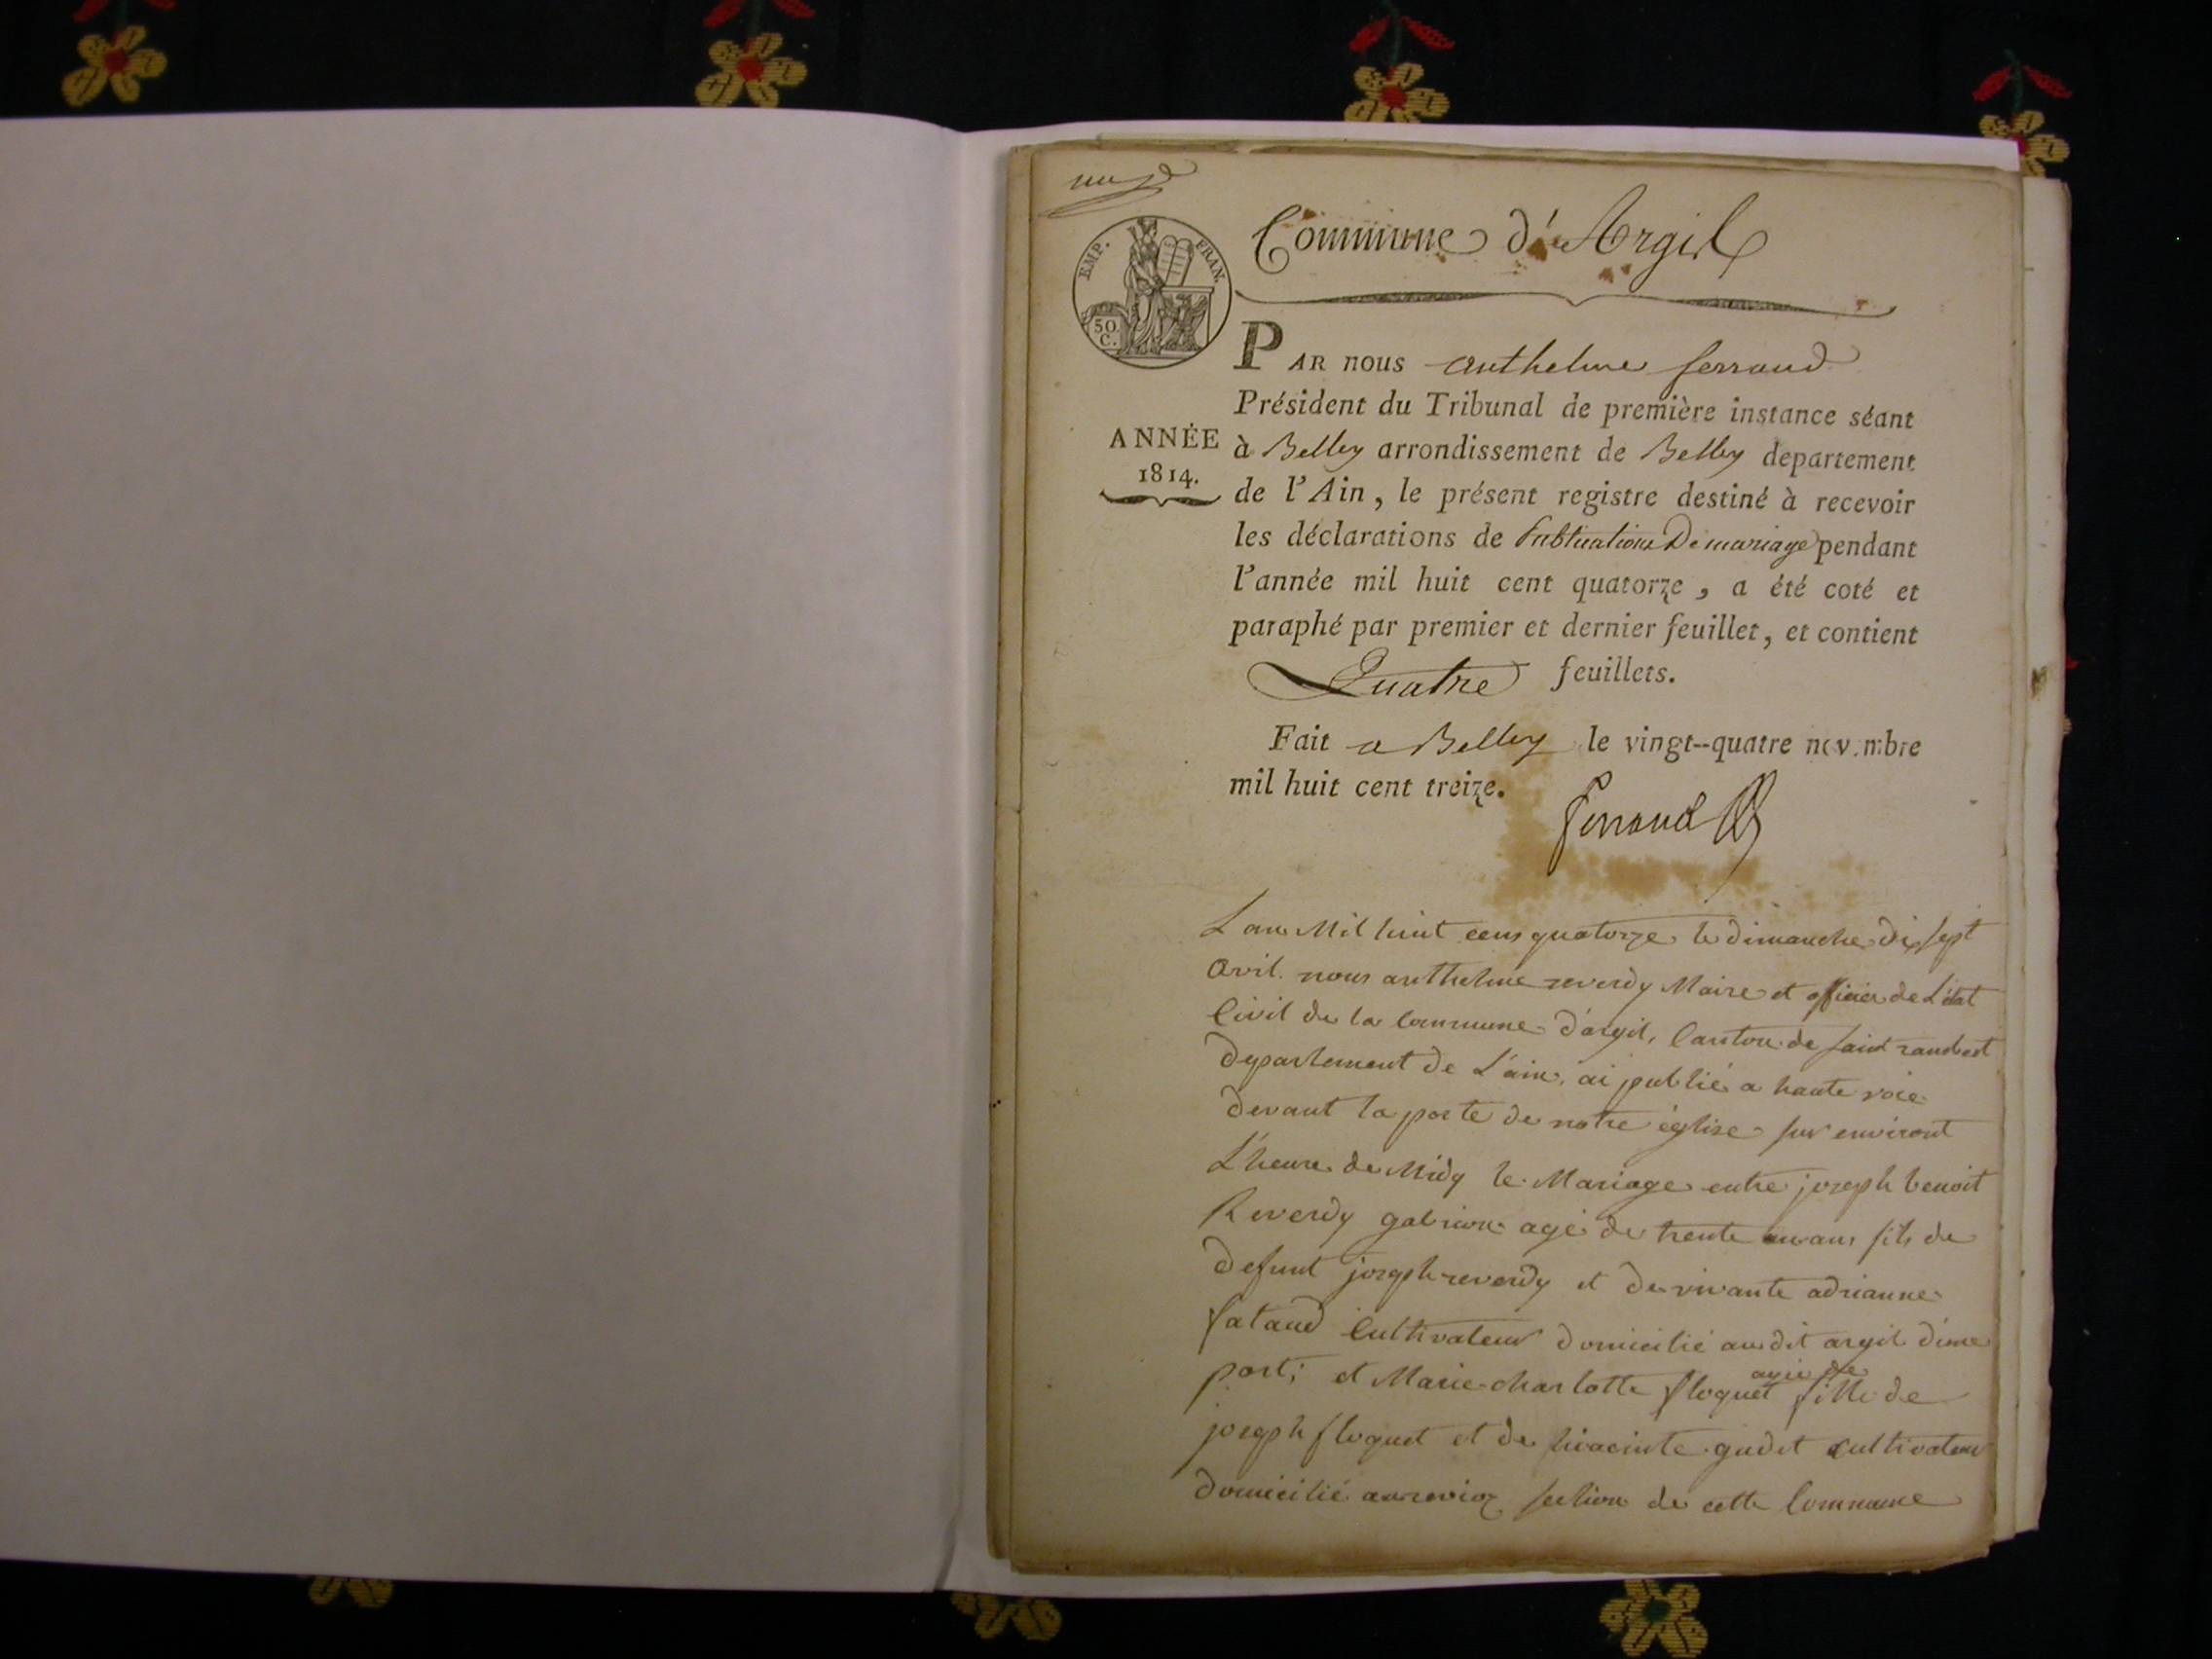 Commune d'Argil
EMP. FRAN.
50. C.
PAR nous anthelme ferrand
Président du Tribunal de première instance séant
ANNÉE
1814.
à Belley arrondissement de Belley departement
de l'Ain, le présent registre destiné à recevoir
les déclarations de Publications De mariage pendant
l'année mil huit cent quatorze, a été coté et
paraphé par premier et dernier feuillet, et contient
Quatre feuillets.
Fait a Belley le vingt--quatre novembre
mil huit cent treize.
ferrand
L'an Mil huit cens quatorze le dimanche dix sept
avril. nous anthelme reverdy Maire et officier de L'état
Civil de la Commune d'argil, Canton de saint rambert
departement de L'ain, ai publié a haute voie
devant la porte de notre église sur environt
L'heure de Midy le Mariage entre joseph benoit
Reverdy gabrion agé de trente un ans fils de
defunt joseph reverdy et de vivante adrianne
fataud Cultivateur domicilié au dit argil d'une
part; et Marie charlotte floquet agée de fille de
joseph floquet et de hiacinte gudet cultivateur
domicilié au section de cette Commune